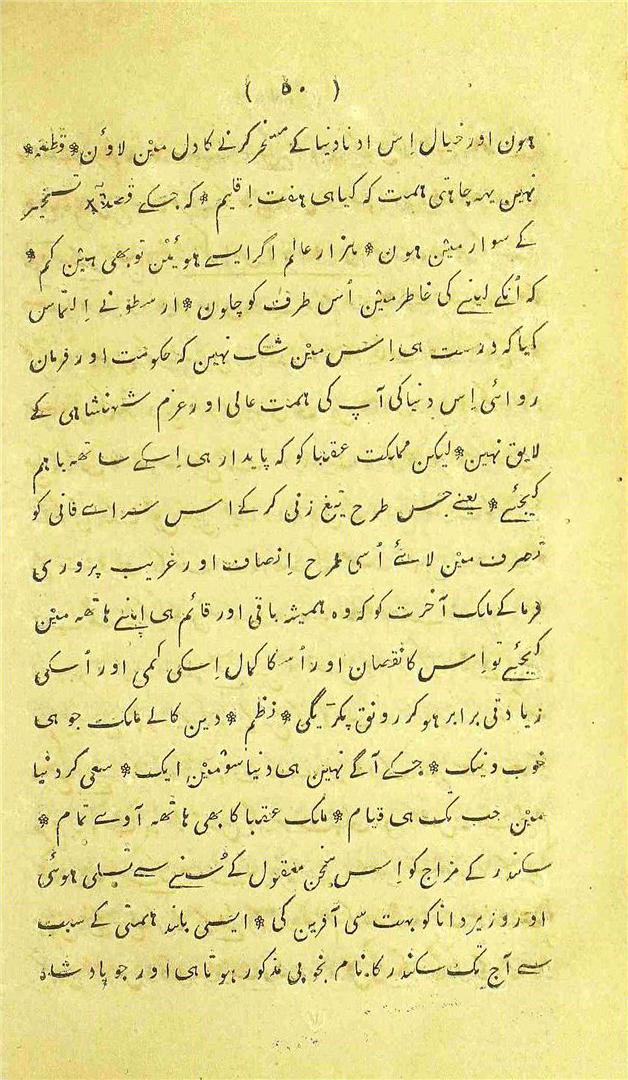 ( ۵۰ )
ہون اور خیال اِس ادنا دنیا کے مسخر کرنے کا دل مین لاؤن * قطعہ *
نہین یہہ چاہتی ہمت کہ کیا ہی ہفت اِقلیم * کہ جسکے قصد تسخیر
کے سوار مین ہون * ہزار عالم اگر ایسے ہوئین تو بھی ہیین کم *
کہ اُنکے لینے کی خاطر مین اُس طرف کو چلون * ارسطو نے اِلتماس
کیا کہ درست ہی اِس مین شک نہین کہ حکومت اور فرمان
روائی اِس دنیا کی آپ کی ہمت عالی اور عزم شہنشاہی کے
لایق نہین * لیکن مملکت عقبا کو کہ پایدار ہی اِسکے ساتھہ باہم
کیجئے * یعنے جس طرح تیغ زنی کرکے اس سراے فانی کو
تصرف مین لائے اُسی طرح اِنصاف اور غریب پروری
فرماکے ملک آخرت کو کہ وہ ہمیشہ باقی اور قائم ہی اپنے ہاتھہ مین
کیجئے تو اِس کا نقصان اور اُسکا کمال اِسکی کمی اور اُسکی
زیادتی برابر ہوکر رونق پکڑیگی * نظم * دین کا لے ملک جو ہی
خوب و نیک * جسکے آگے نہین ہی دنیا سَو مین ایک * سعی کر دنیا
مین جب تک ہی قیام * ملک عقبا کا بھی ہاتھہ آوے تمام *
سکندر کے مزاج کو اِس سخن معقول کے سُننے سے تسلی ہوئی
اور وزیر دانا کو بہت سی آفرین کی * ایسی بلند ہمتی کے سبب
سے آج تک سکندر کا نام بخوبی مذکور ہوتا ہی اور جو پادشاہ